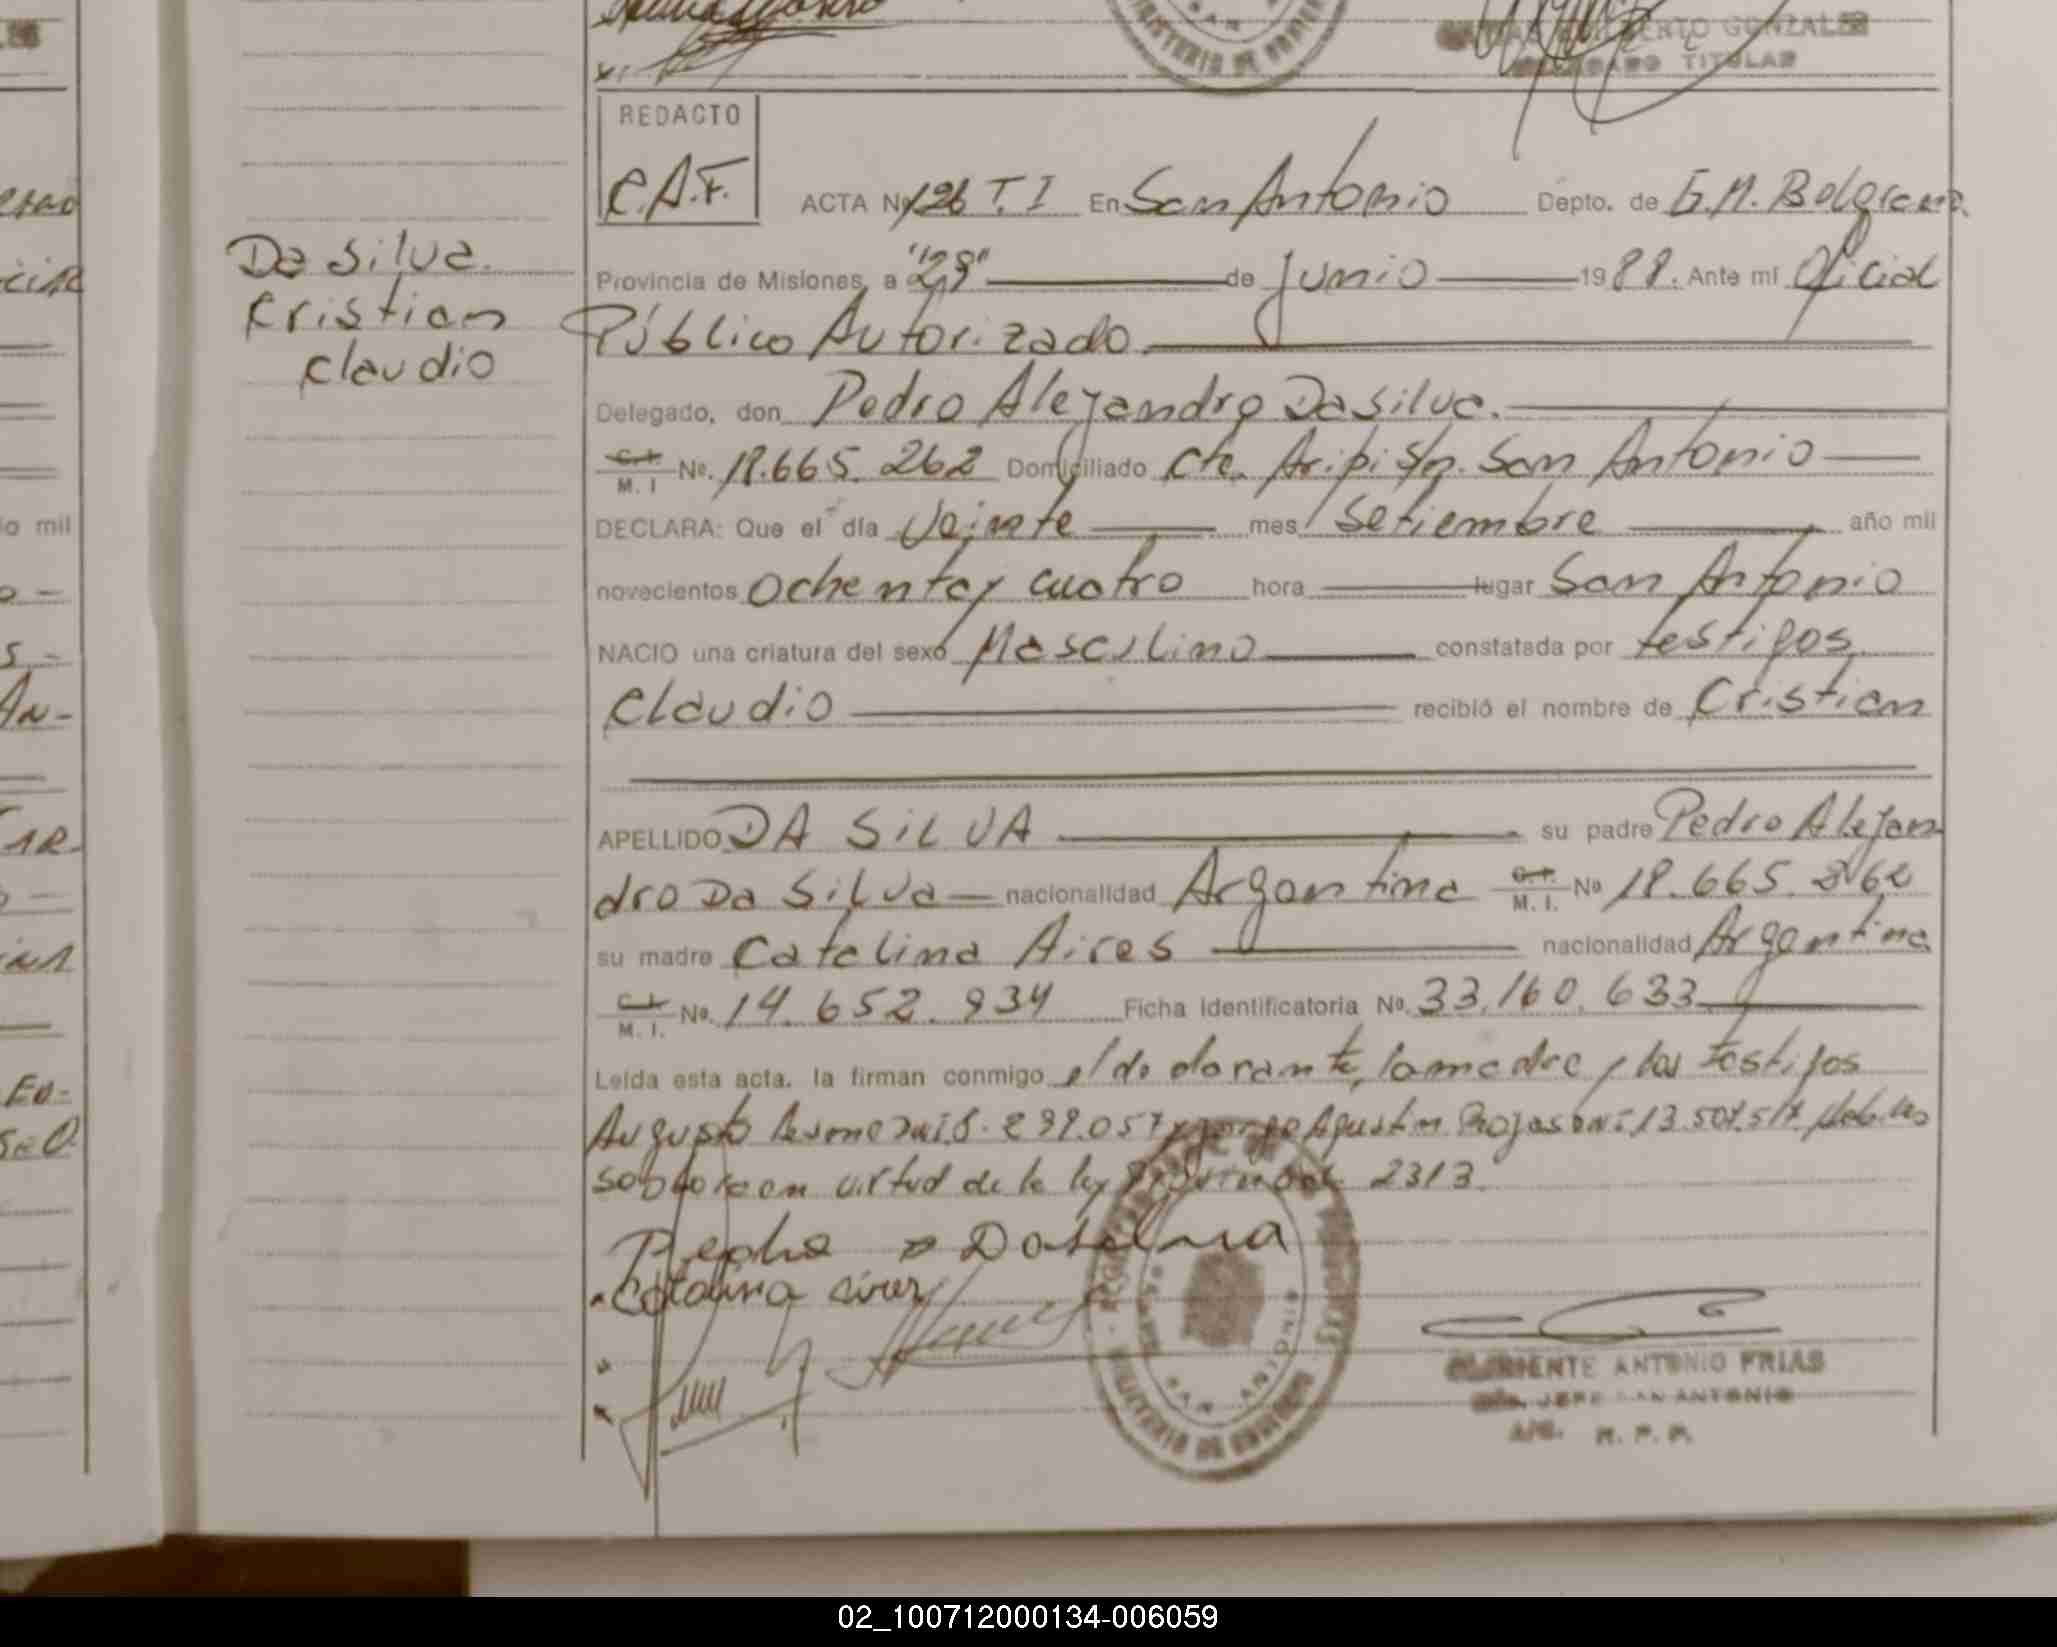 GONZALEZ
TITULAR
REDACTO
C.A.F.
ACTA Nº 126 T. I En San Antonio Depto. de G.M. Belgrano.
Da Silva.
Cristian
Claudio
Provincia de Misiones, a "29" de Junio 1988. Ante mi Oficial
Público Autorizado.
Delegado, don Pedro Alejandro Da Silva.
C.I. M. I Nº. 18.665.262 Domiciliado Cte. S/n. San Antonio
DECLARA: Que el día Veinte mes Setiembre año mil
novecientos Ochenta y cuatro hora lugar San Antonio
NACIO una criatura del sexo Masculino constatada por testigos
Claudio recibió el nombre de Cristian
APELLIDO DA SILVA su padre Pedro Alejan
dro Da Silva nacionalidad Argentina C.I. M. I. Nº 18.665.262
su madre Catalina Aires nacionalidad Argentina
C.I. M. I. Nº. 14.652.934 Ficha Identificatoria Nº. 33.160.633
Leída esta acta, la firman conmigo el declarante, la madre y los testigos
Augusto y Jorge Agustin Rojas
en virtud de la ley Provincial 2313.
Pedro Da Silva
Catalina
MINISTERIO DE GOBIERNO
SAN ANTONIO
ANTONIO FRIAS
JEFE SAN ANTONIO
A/C. R. P. P.
02_100712000134-006059